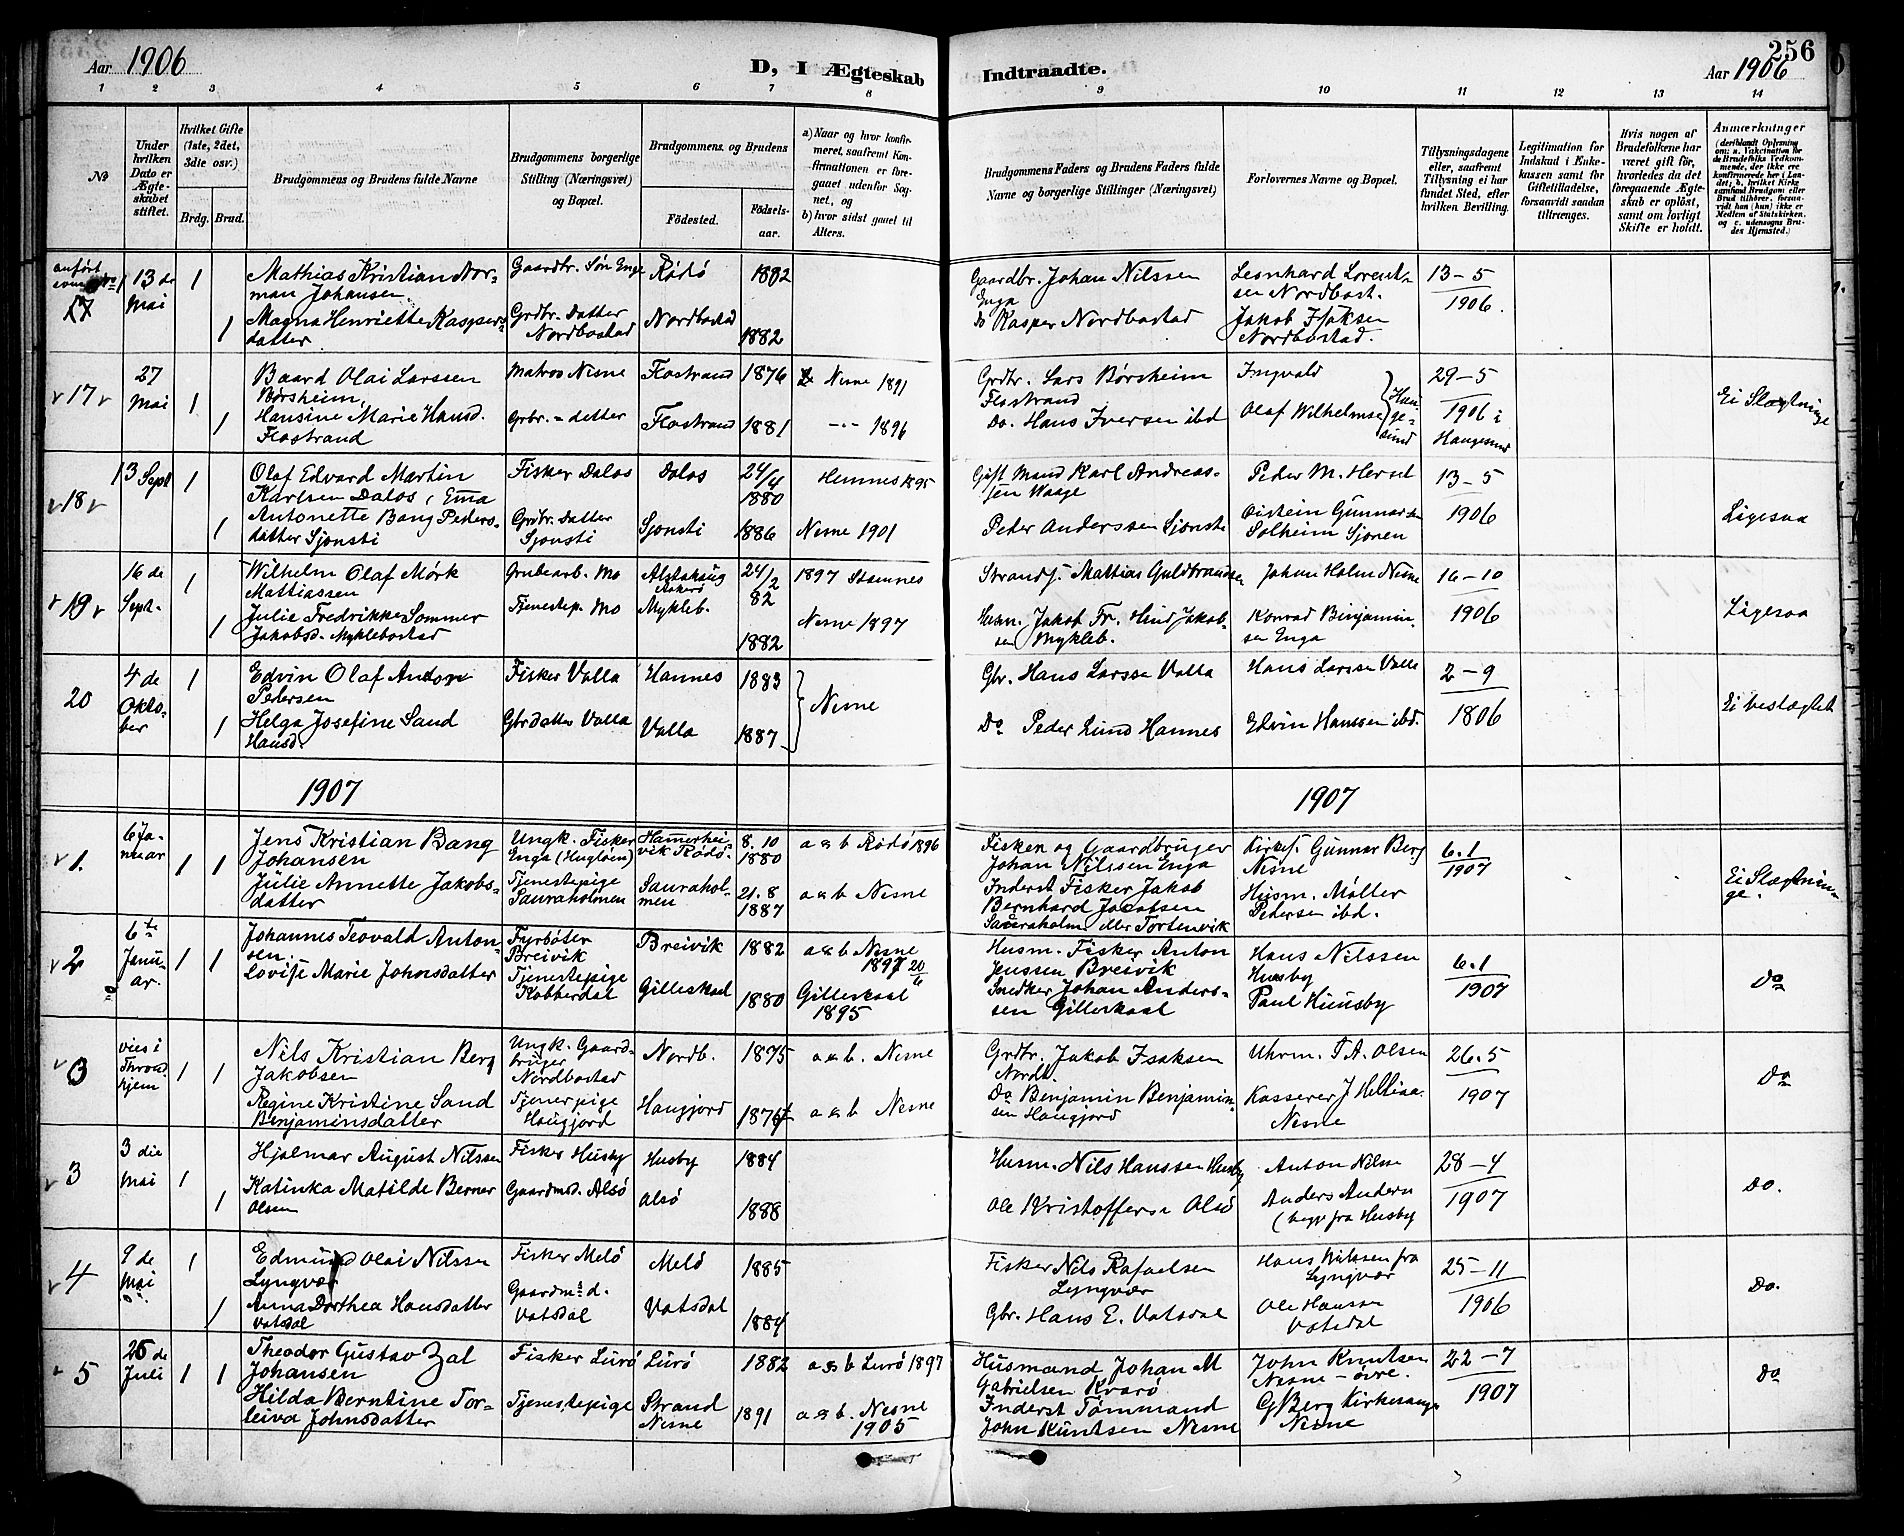 Aar 1906
D, I Ægteskab
Indtraadte.
256
Aar 1906
1 2 3 4 5 6 7 8
9 10 11 12 13 14
No
Under hvilken Dato er Ægteskabet stiftet.
Hvilket Gifte (1ste, 2det, 3die osv.)
Brdg. Brud.
Brudgommens og Brudens fulde Navne
Brudgommens borgerlige Stilling (Næringsvei) og Bopæl.
Brudgommens og Brudens
Fødested.
Fødselsaar.
a) Naar og hvor konfirmeret, saafremt Konfirmationen er foregaaet udenfor Sognet, og
b) hvor sidst gaaet til Alters.
Brudgommens Faders og Brudens Faders fulde Navne og borgerlige Stillinger (Næringsvei)
Forlovernes Navne og Bopæl.
Tillysningsdagene eller, saafremt Tillysning ei har fundet Sted, efter hvilken Bevilling.
Legitimation for Indskud i Enkekassen samt for Giftetilladelse, forsaavidt saadan tiltrænges.
Hvis nogen af Brudefolkene har været gift før, hvorledes da det foregaaende Ægteskab er opløst, samt om lovligt Skifte er holdt.
Anmærkninger
(deriblandt Oplysning om: a. Vakcination for de Brudefolks Vedkommende, der ikke ere konfirmerede her i Landet; b. hvilket Kirkesamfund Brudgom eller Brud tilhører, forsaavidt han (hun) ikke er Medlem af Statskirken, og c. udensogns Brudes Hjemsted.)
anført
17
13 de
Mai
1
1
Mathias Kristian Norman
Johansen
Magna Henriette Kaspersdatter
Gaardbr. Søn Enge
Grdbr. Datter
Nordbostad
Rødø
Nordbostad
1882
1882
Gaardbr. Johan Nilssen
Enga
Do Kasper Nordbostad
Leonhard Lorentsen Nordbost.
Jakob Isaksen
Nordbostad.
13-5
1906.
17
27
Mai
1
1
Baard Olai Larssen
Børsheim,
Hansine Marie Hansd.
Flostrand
Matros Nesne
Grbr.=datter
Flostrand
Flostrand
1876
1881
Nesne 1891
-"- 1896
Grdbr. Lars Børsheim
Flostrand
Do. Hans Iversen ibd
Ingvald
Olaf Wilhelmse
Haugesund
29-5
1906 i
Haugesund
Ei Slægtninge
18
13 Sept
1
1
Olaf Edvard Martin
Karlsen Dalos, Ema
Antonette Bang Pedersdatter Sjonsti
Fisker Dalos
Grdbr. Datter
Sjonsti
Dalos
Sjonsti
24/4
1880
1886
Hemnes 1895
Nesne 1901
Gift Mand Karl Andreassen Waage
Peter Anderssen Sjonsti
Peder M. Herset
Oistein Gunnarsen
Solheim Sjonen
13-5
1906
Ligesaa
19
16 de
Sept.
1
1
Wilhelm Olaf Mørk
Mattiassen
Julie Fredrikke Sommer
Jakobsd. Myklebostad
Grubearb. Mo
Tjenestep. Mo
Alstahaug
Mykleb.
24/2
82
1882
1897 Stamnes
Nesne 1897
Strands. Mattias Guldbrandsen
Husm. Jakob Fr. Hind Jakobsen Mykleb.
Johan Holm Nesne
Konrad Binjaminsen Enga
16-10
1906
Ligesaa
20
4 de
Oktober
1
1
Edvin Olaf Andor
Pedersen
Helga Josefine Sand
Hansd.
Fisker Valla
Gbrdatter Valla
Hannes
Valla
1883
1887
Nesne
Gbr. Hans Larssen Valla
Do Peder Lund Hannes
Hans Larssen Valla
Edvin Hanssen ibd.
2-9
1806
Ei beslægtet
1907
1907
1.
6 Januar
1 1
Jens Kristian Bang
Johansen
Julie Annette Jakobsdatter
Ungk. Fisker
Enga (Hugløen)
Tjenestepige
Sauraholmen
Hamerheivik Rødø.
Sauraholmen
8.10
1880
21.8
1887
a & b Rødø 1896
a & b Nesne
Fisker og Gaardbruger
Johan Nilssen Enga
Inderst Fisker Jakob
Bernhard Jacobsen
Sauraholm eller Tortenvik
Kirkes. Gunnar Berg
Nesne
Husm. Møller
Pedersen ibd.
6.1
1907
Ei Slægtninge.
2
6te
Januar.
1 1
Johannes Teovald Antonsen.
Lovise Marie Johnsdatter
Fyrbøter
Breivik
Tjenestepige
Kobberdal
Breivik
Gilleskaal
1882
1880
a & b Nesne
1897
Gilleskaal
1895
Husm. Fisker Anton
Jenssen Breivik
Snedker Johan Anderssen Gilleskaal
Hans Nilssen
Husby
Paul Huusby
6.1
1907
Do
3
vies i
Throndhjem
1 1
Nils Kristian Berg
Jakobsen
Regine Kristine Sand
Benjaminsdatter
Ungk. Gaardbruger
Nordbostad
Tjenerpige
Haugjord
Nordb.
Haugjord
1875
a & b. Nesne
a & b Nesne
Grdbr. Jakob Isaksen
Nordb.
Do Benjamin Benjaminsen Haugjord
Uhrm. T.A. Olsen
Kasserer J Hellisa.
Nesne
26.5
1907
Do
3
3 die
Mai
1
1
Hjalmar August Nilssen
Katinka Matilde Berner
Olsen
Fisker Husby
Gaardmd. Alsø
Husby
Alsø
1884
1888
Husm. Nils Hanssen Husby
Ole Kristoffersen Alsø
Anton Nilsne
Anders Andersn
(begge fra Husby
28-4
1907
Do.
4
9 de
Mai
1
1
Edmund Olai Nilssen
Lyngvær
Anna Dorthea Hansdatter
Vatsdal
Fisker Melø
Gaardmsd.
Vatsdal
Melø
Vatsdal
1885
1884
Fisker Nils Rafaelsen
Lyngvær
Gbr. Hans E. Vatsdal
Hans Nilssen fra
Lyngvær
Ole Hanssen
Vatsdal
25-11
1906
Do.
5
26 de
Juli
1 1
Theodor Gustav Zal
Johansen
Hilda Berntine Torleiva Johnsdatter
Fisker Lurø
Tjenestepige
Lurø
Strand
Nesne
1882
1891
a & b Lurø 1897
a & b. Nesne
1905
Husmand Johan M
Gabrielsen Kvarø
Inderst Tømmand
John Kuntsen Nesne
John Knutsen
Nesne - øvre.
G Berg Kirkesanger
Nesne
22-7
1907
Do